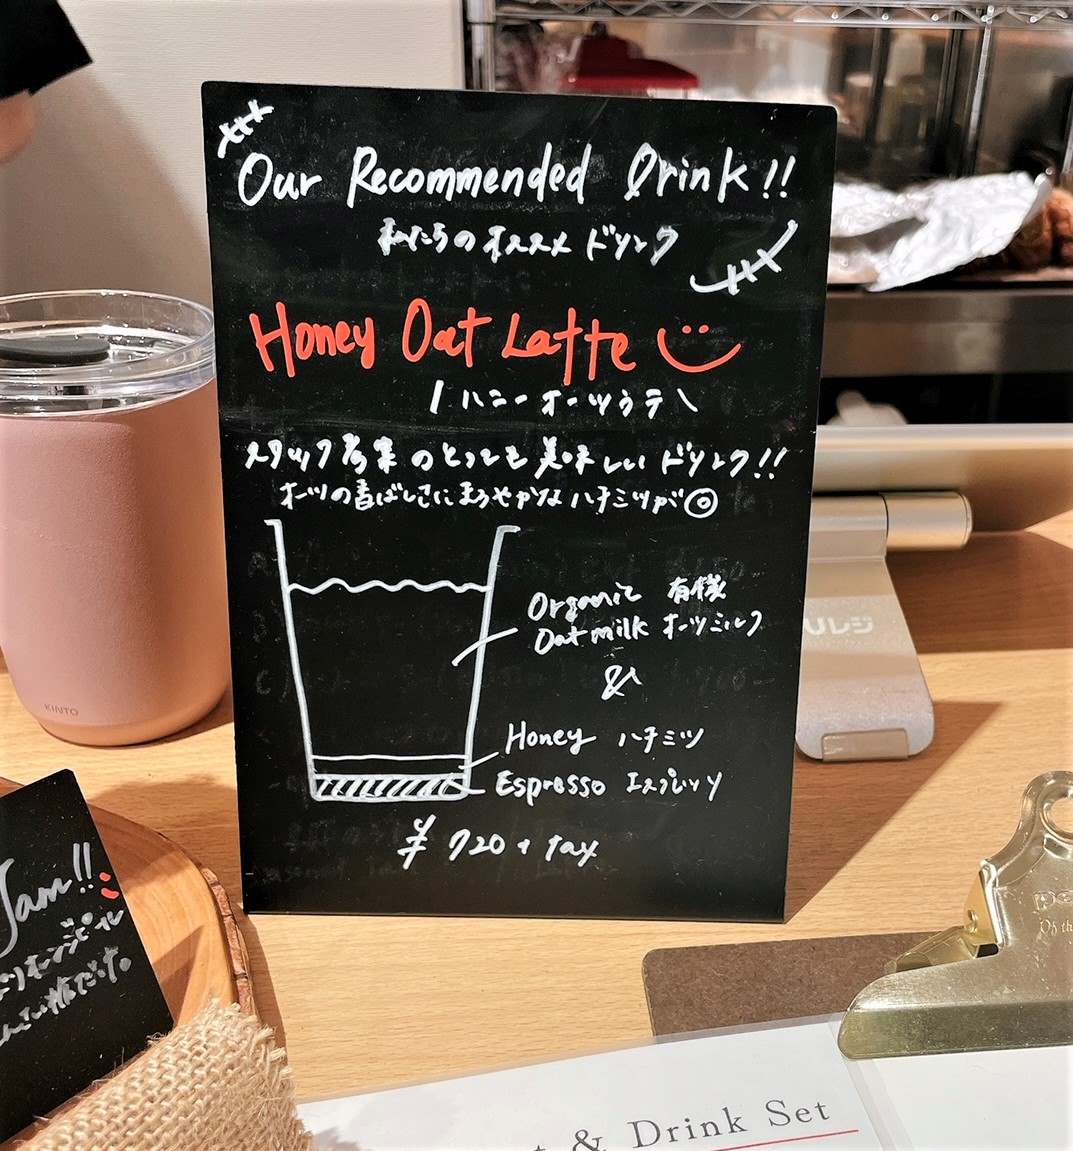 Our Recommended Drink!!
私たちのオススメドリンク
Honey Oat Latte
ハニーオーツラテ
スタッフ考案のとっても美味しいドリンク!!
オーツの香ばしさにまろやかなハチミツが◎
Organic 有機
Oat milk オーツミルク
&
Honey ハチミツ
Espresso エスプレッソ
¥720+tax
KINTO
レジ
Jam!!
オレンジピール
& Drink Set